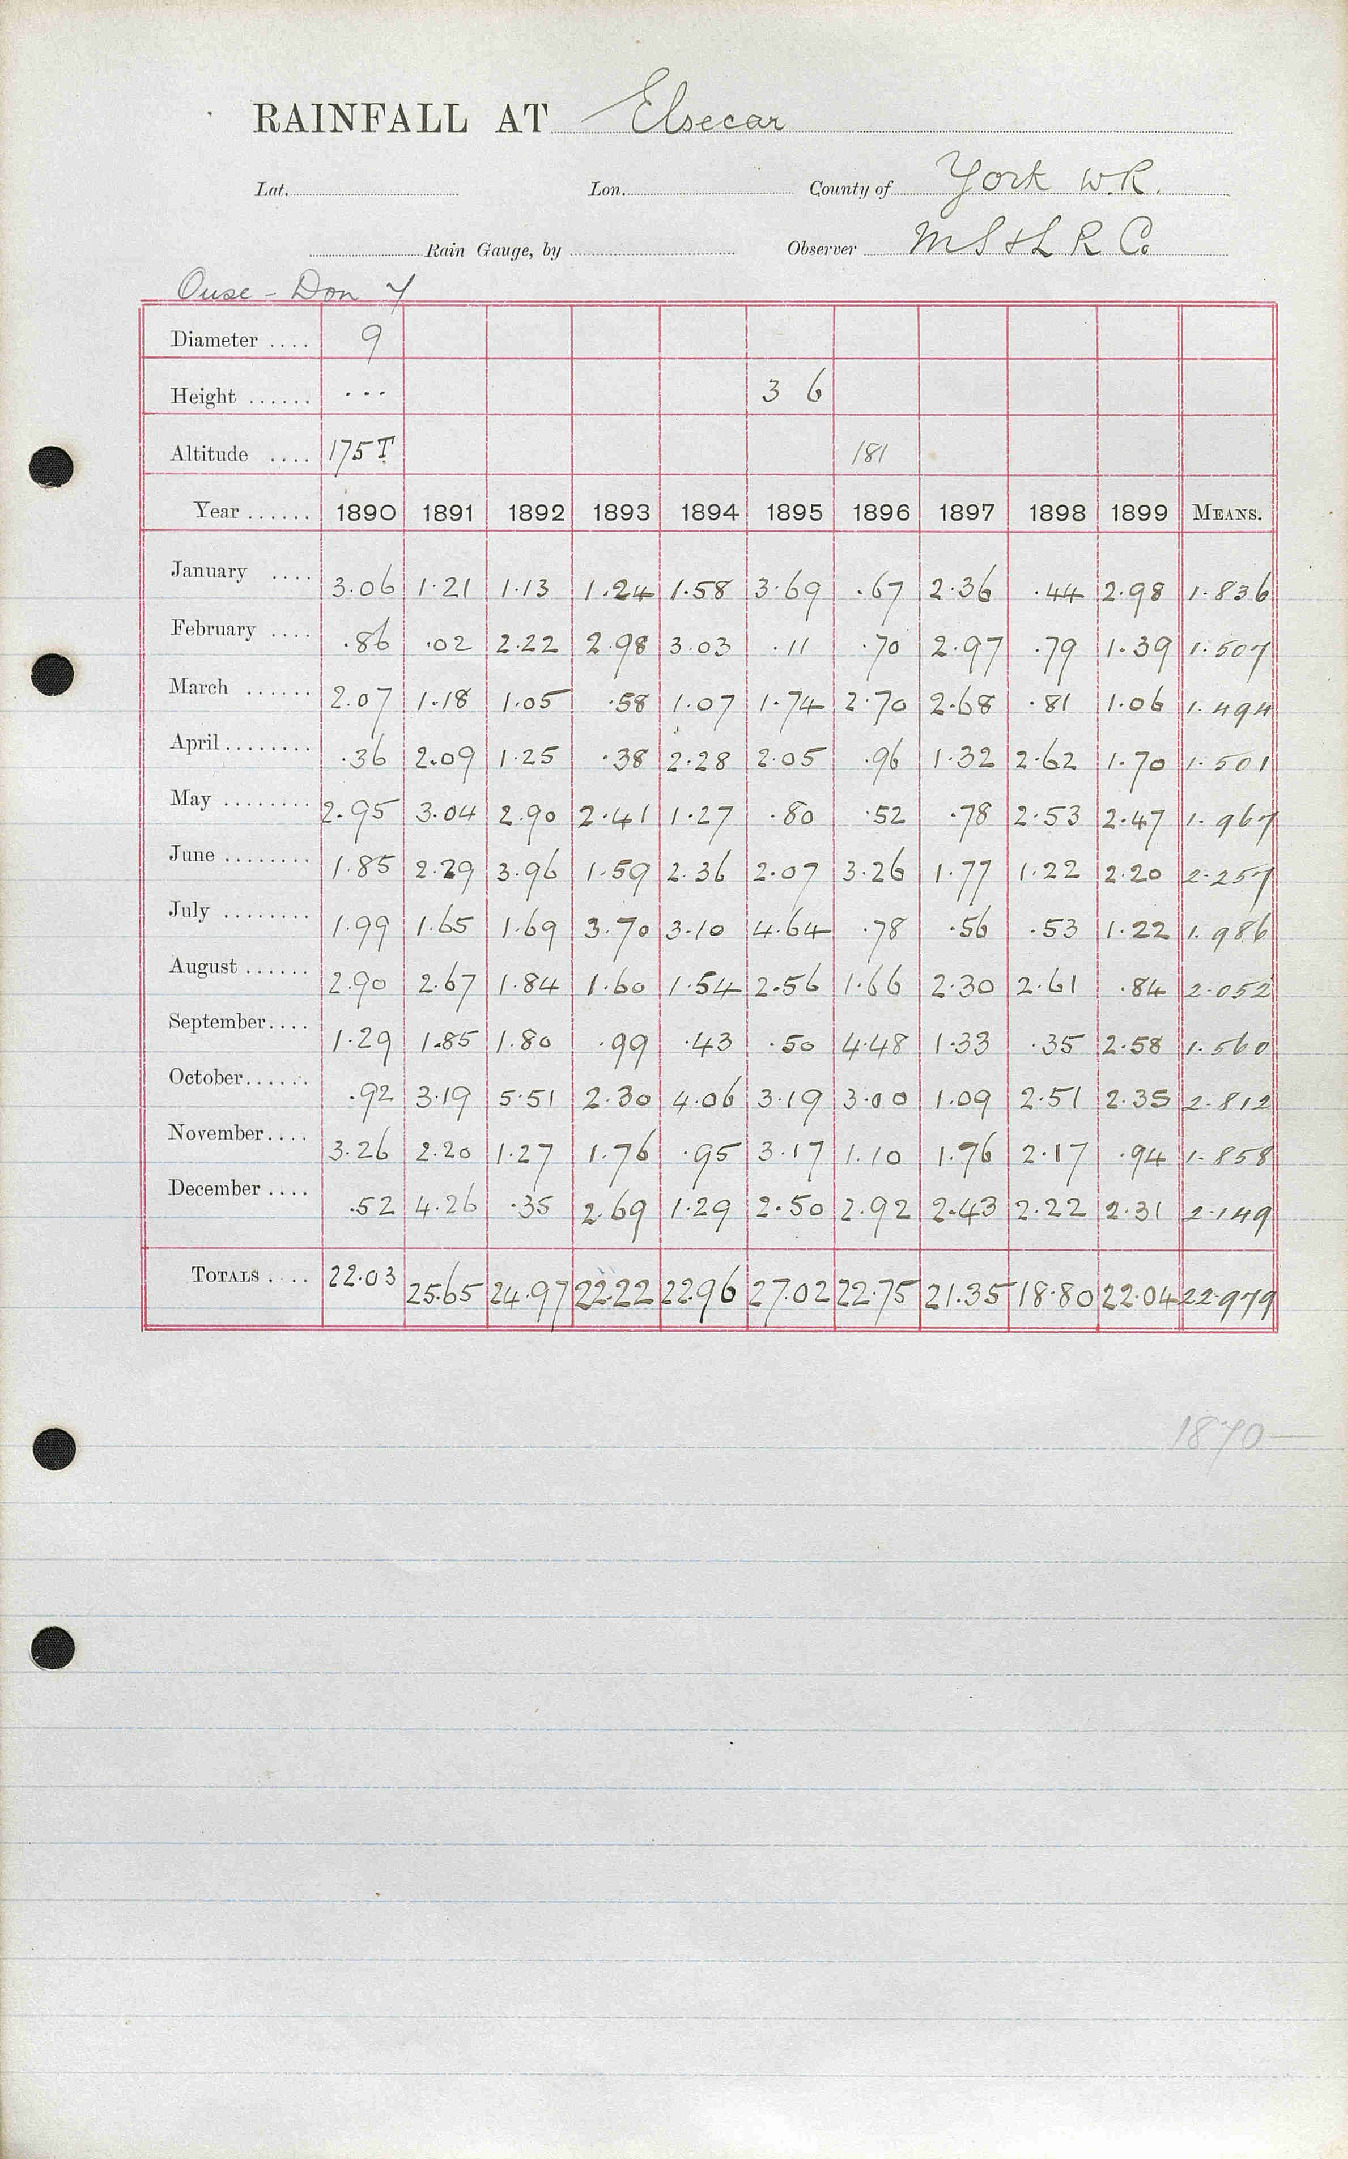 RAINFALL AT Elsecar
Lat. Lon. County of York W.R.
Rain Gauge, by Observer M S & L R Co
Ouse - Don 7
Diameter .... 9
Height ...... ... 3 6
Altitude .... 175 T. 181
Year ...... 1890 1891 1892 1893 1894 1895 1896 1897 1898 1899 MEANS.
January .... 3.06 1.21 1.13 1.24 1.58 3.69 .67 2.36 .44 2.98 1.836
February .... .86 .02 2.22 2.98 3.03 .11 .70 2.97 .79 1.39 1.507
March ...... 2.07 1.18 1.05 .58 1.07 1.74 2.70 2.68 .81 1.06 1.494
April ........ .36 2.09 1.25 .38 2.28 2.05 .96 1.32 2.62 1.70 1.501
May ........ 2.95 3.04 2.90 2.41 1.27 .80 .52 .78 2.53 2.47 1.967
June ........ 1.85 2.29 3.96 1.59 2.36 2.07 3.26 1.77 1.22 2.20 2.257
July ........ 1.99 1.65 1.69 3.70 3.10 4.64 .78 .56 .53 1.22 1.986
August ...... 2.90 2.67 1.84 1.60 1.54 2.56 1.66 2.30 2.61 .84 2.052
September .... 1.29 1.85 1.80 .99 .43 .50 4.48 1.33 .35 2.58 1.560
October ...... .92 3.19 5.51 2.30 4.06 3.19 3.00 1.09 2.51 2.35 2.812
November .... 3.26 2.20 1.27 1.76 .95 3.17 1.10 1.76 2.17 .94 1.858
December .... .52 4.26 .35 2.69 1.29 2.50 2.92 2.43 2.22 2.31 2.149
TOTALS .... 22.03 25.65 24.97 22.22 22.96 27.02 22.75 21.35 18.80 22.04 22.979
1870—